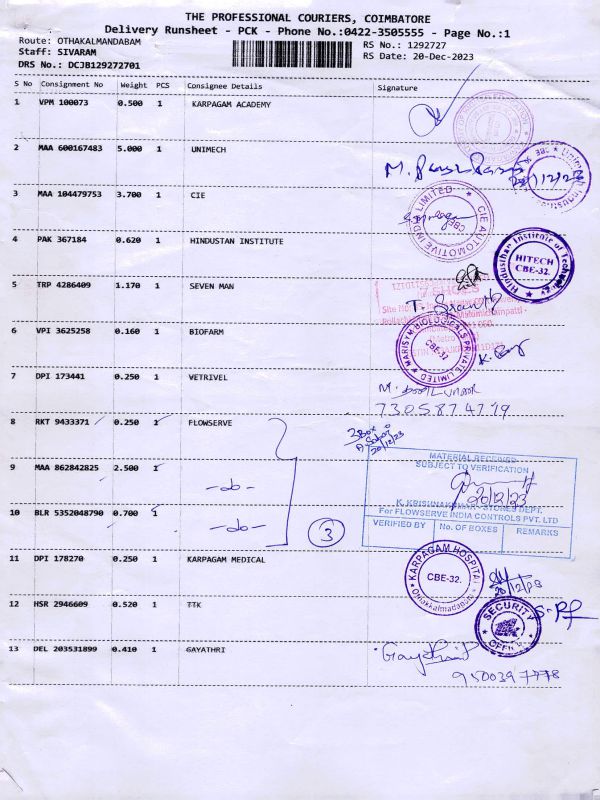 THE PROFESSIONAL COURIERS, COIMBATORE
Delivery Runsheet - PCK - Phone No.:0422-3505555 - Page No.:1
Route: OTHAKALMANDABAM
Staff: SIVARAM
DRS No.: DCJB129272701
RS No.: 1292727
RS Date: 20-Dec-2023
S No Consignment No Weight PCS Consignee Details Signature
1 VPM 100073 0.500 1 KARPAGAM ACADEMY
2 MAA 600167483 5.000 1 UNIMECH
20/12/23
3 MAA 104479753 3.700 1 CIE
CIE AUTOMOTIVE INDIA LIMITED
CBE
4 PAK 367184 0.620 1 HINDUSTAN INSTITUTE
Hindusthan Institute of Technology
HITECH
CBE-32.
5 TRP 4286409 1.170 1 SEVEN MAN
6 VPI 3625258 0.160 1 BIOFARM
BIOLOGICALS PRIVATE LIMITED
CBE-32.
7 DPI 173441 0.250 1 VETRIVEL
7305874719
8 RKT 9433371 0.250 1 FLOWSERVE
3 Box
20/12/23
9 MAA 862842825 2.500 1 -do-
10 BLR 5352048790 0.700 1 -do-
3
MATERIAL RECEIVED
SUBJECT TO VERIFICATION
20/12/23
K. KRISHNAKUMAR - STORES DEPT.
For FLOWSERVE INDIA CONTROLS PVT. LTD
VERIFIED BY No. OF BOXES REMARKS
11 DPI 178270 0.250 1 KARPAGAM MEDICAL
KARPAGAM HOSPITAL
CBE-32.
Othakkalmadapam
20/12/23
12 HSR 2946609 0.520 1 TTK
SECURITY
OFFICE
13 DEL 203531899 0.410 1 GAYATHRI
Gayathri
9500397778